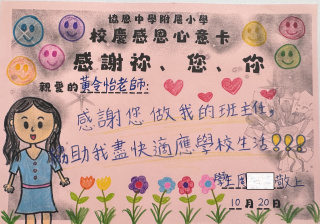 協恩中學附屬小學
校慶感恩心意卡
感謝祢、您、你
親愛的黃令怡老師:
感謝您做我的班主任,
協助我盡快適應學校生活!!!
學生周 敬上
10月20日